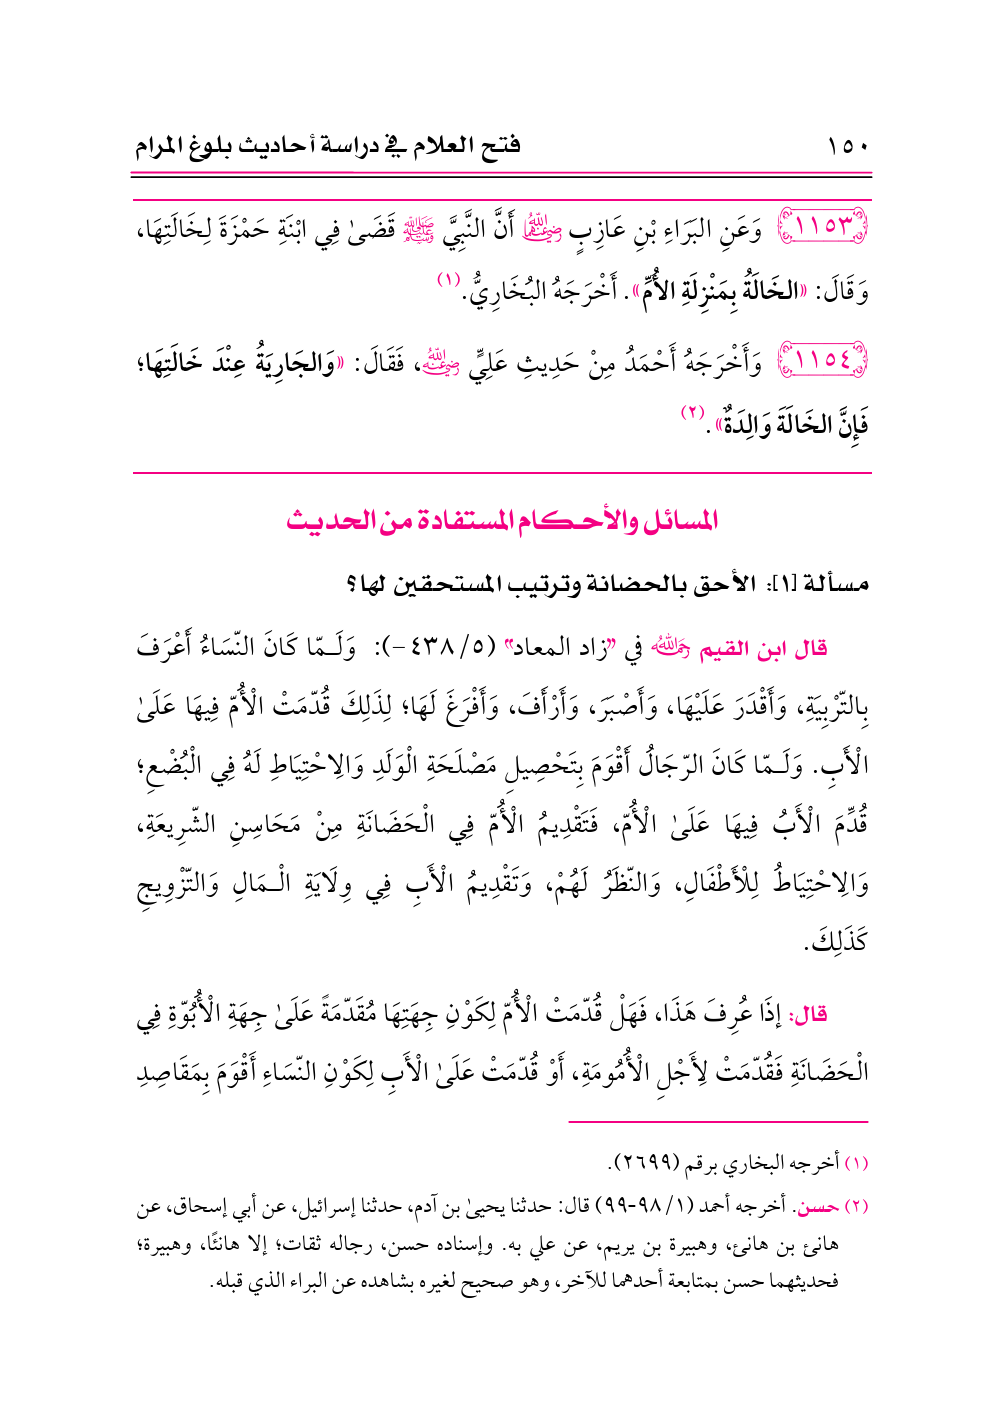 ١٥٠ فتح العلام في دراسة أحاديث بلوغ المرام
١١٥٣ وَعَنِ البَرَاءِ بْنِ عَازِبٍ رضي الله عنهما أَنَّ النَّبِيَّ ﷺ قَضَىٰ فِي ابْنَةِ حَمْزَةَ لِخَالَتِهَا،
وَقَالَ: «الخَالَةُ بِمَنْزِلَةِ الأُمِّ». أَخْرَجَهُ البُخَارِيُّ.(١)
١١٥٤ وَأَخْرَجَهُ أَحْمَدُ مِنْ حَدِيثِ عَلِيٍّ رضي الله عنه، فَقَالَ: «وَالجَارِيَةُ عِنْدَ خَالَتِهَا؛
فَإِنَّ الخَالَةَ وَالِدَةٌ».(٢)
المسائل والأحكام المستفادة من الحديث
مسألة [١]: الأحق بالحضانة وترتيب المستحقين لها؟
قال ابن القيم رحمه الله في "زاد المعاد" (٥/ ٤٣٨-): وَلَـمّا كَانَ النّسَاءُ أَعْرَفَ
بِالتّرْبِيَةِ، وَأَقْدَرَ عَلَيْهَا، وَأَصْبَرَ، وَأَرْأَفَ، وَأَفْرَغَ لَهَا؛ لِذَلِكَ قُدّمَتْ الْأُمّ فِيهَا عَلَىٰ
الْأَبِ. وَلَـمّا كَانَ الرّجَالُ أَقْوَمَ بِتَحْصِيلِ مَصْلَحَةِ الْوَلَدِ وَالِاحْتِيَاطِ لَهُ فِي الْبُضْعِ؛
قُدِّمَ الْأَبُ فِيهَا عَلَىٰ الْأُمّ، فَتَقْدِيمُ الْأُمّ فِي الْحَضَانَةِ مِنْ مَحَاسِنِ الشّرِيعَةِ،
وَالِاحْتِيَاطُ لِلْأَطْفَالِ، وَالنّظَرُ لَهُمْ، وَتَقْدِيمُ الْأَبِ فِي وِلَايَةِ الْـمَالِ وَالتّزْوِيجِ
كَذَلِكَ.
قال: إذَا عُرِفَ هَذَا، فَهَلْ قُدّمَتْ الْأُمّ لِكَوْنِ جِهَتِهَا مُقَدّمَةً عَلَىٰ جِهَةِ الْأُبُوّةِ فِي
الْحَضَانَةِ فَقُدّمَتْ لِأَجْلِ الْأُمُومَةِ، أَوْ قُدّمَتْ عَلَىٰ الْأَبِ لِكَوْنِ النّسَاءِ أَقْوَمَ بِمَقَاصِدِ
(١) أخرجه البخاري برقم (٢٦٩٩).
(٢) حسن. أخرجه أحمد (١/ ٩٨-٩٩) قال: حدثنا يحيىٰ بن آدم، حدثنا إسرائيل، عن أبي إسحاق، عن
هانئ بن هانئ، وهبيرة بن يريم، عن علي به. وإسناده حسن، رجاله ثقات؛ إلا هانئًا، وهبيرة؛
فحديثهما حسن بمتابعة أحدهما للآخر، وهو صحيح لغيره بشاهده عن البراء الذي قبله.